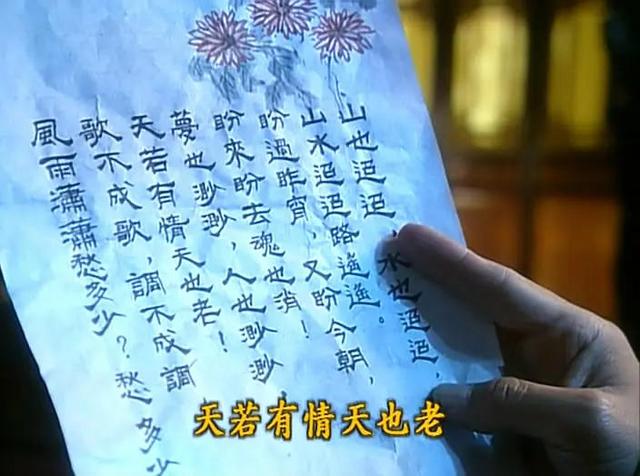 山也迢迢，水也迢迢，
山水迢迢路遙遙。
盼過昨宵，又盼今朝，
盼來盼去魂也消！
夢也渺渺，人也渺渺，
天若有情天也老！
歌不成歌，調不成調
風雨瀟瀟愁多少？愁多少
天若有情天也老